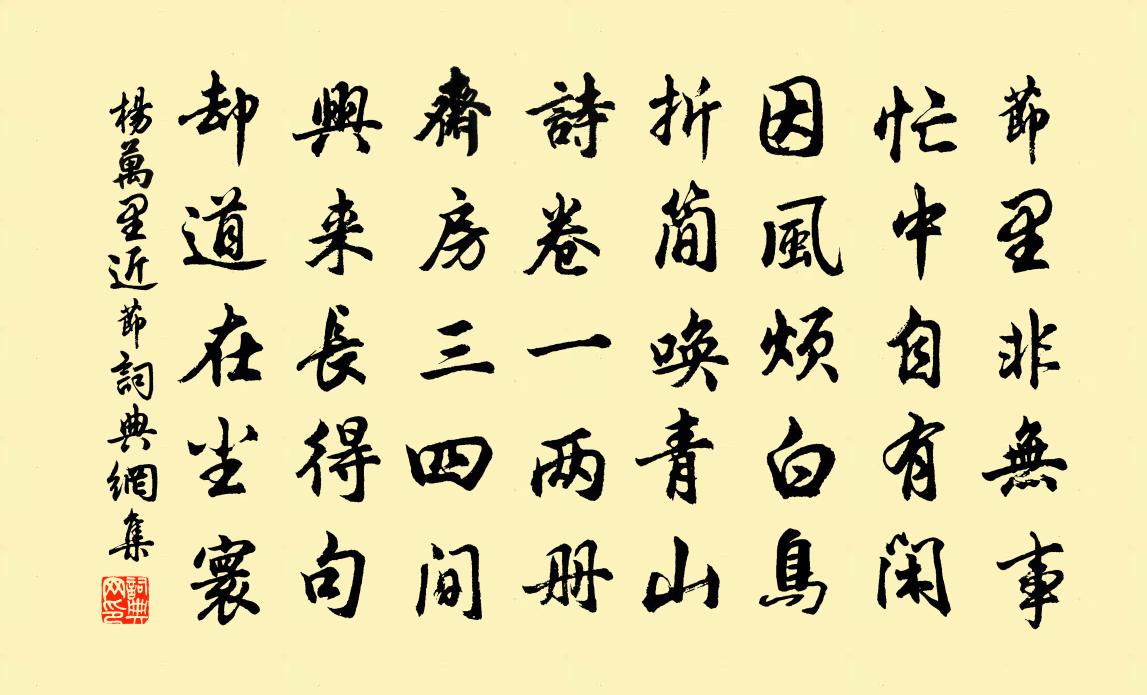 節里非無事
忙中自有閑
因風煩白鳥
折簡喚青山
詩卷一兩册
齋房三四間
興来長得句
却道在尘寰
楊萬里近節詞典網集
詞典網印